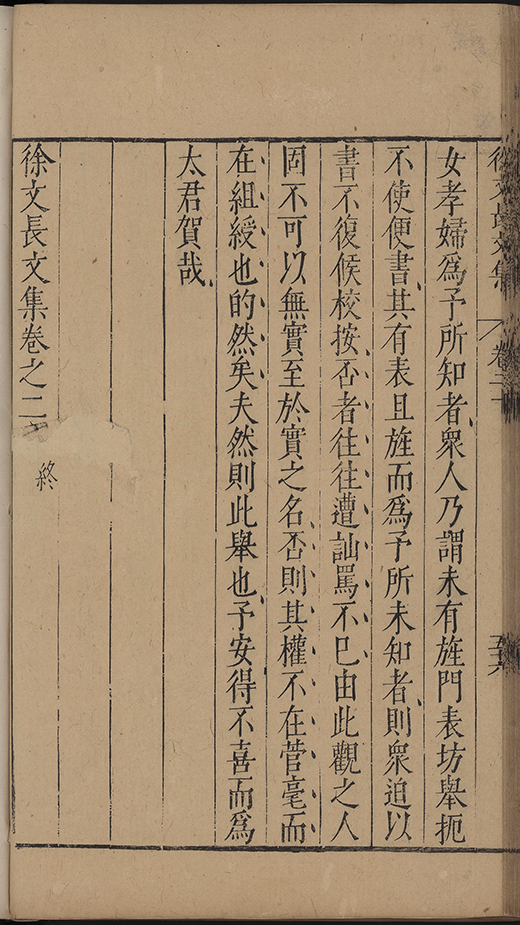 徐文長文集 卷二十
女孝婦爲予所知者、衆人乃謂未有旌門表坊舉扼
不使便書、其有表且旌而爲予所未知者、則衆迫以
書不復候校按、否者往往遭訕罵不已由此觀之人
固不可以無實至於實之名、否則其權不在菅毫而
在組綬也的然矣夫然則此舉也、予安得不喜而爲
太君賀哉、
徐文長文集卷之二
終